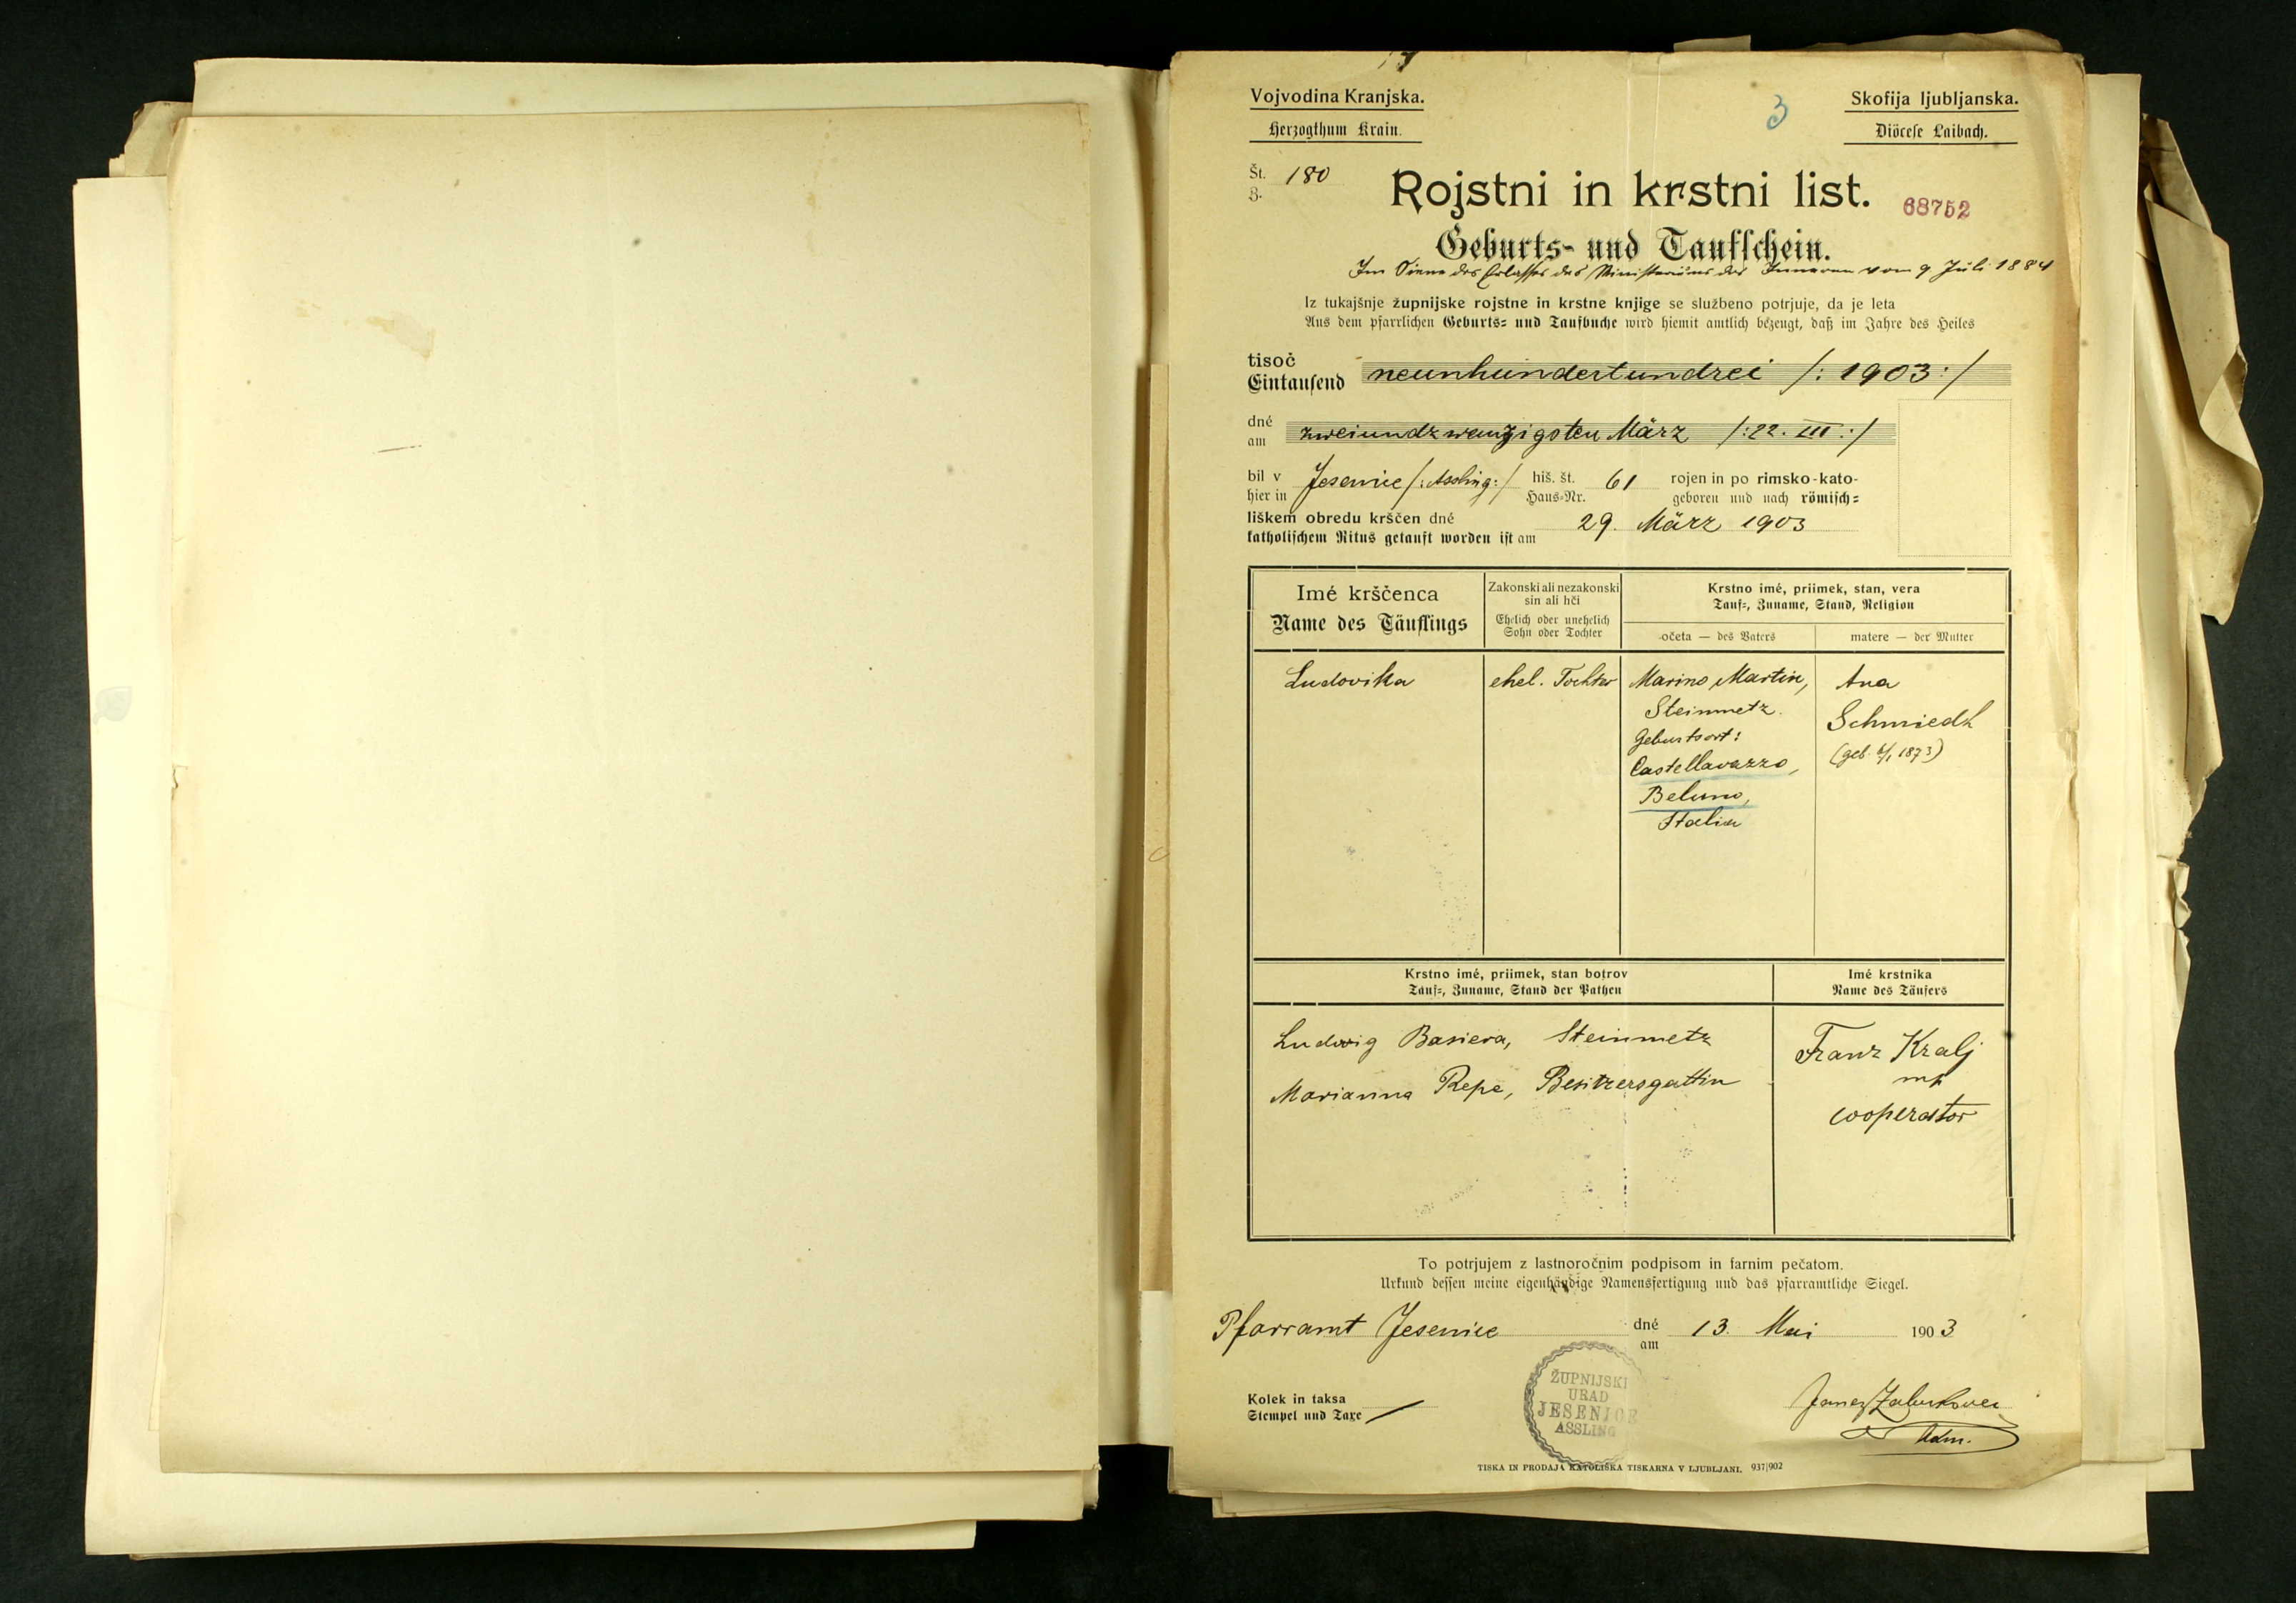 Vojvodina Kranjska.
Herzogthum Krain.
3
Skofija ljubljanska.
Diöcese Laibach.
Št. 180
Z.
Rojstni in krstni list.
68752
Geburts- und Taufschein.
Im Sinne des Erlasses des Ministeriums des Inneren vom 9 Juli 1884
Iz tukajšnje župnijske rojstne in krstne knjige se službeno potrjuje, da je leta
Aus dem pfarrlichen Geburts- und Taufbuche wird hiemit amtlich bezeugt, daß im Jahre des Heiles
tisoč
Eintausend neunhundertundrei /: 1903 :/
dné
am zweiundzwanzigsten März /: 22. III :/
bil v Jesenice /: Assling :/ hiš. št. 61 rojen in po rimsko-kato-
hier in Haus-Nr. geboren und nach römisch-
liškem obredu krščen dné 29. März 1903
katholischem Ritus getauft worden ist am
Imé krščenca
Name des Täuflings
Zakonski ali nezakonski
sin ali hči
Ehelich oder unehelich
Sohn oder Tochter
Krstno imé, priimek, stan, vera
Tauf-, Zuname, Stand, Religion
očeta — des Vaters
matere — der Mutter
Ludovika
ehel. Tochter
Marino Martin,
Steinmetz.
Geburtsort:
Castellavazzo,
Beluno,
Italien
Ana
Schmiedt
(geb. 1873)
Krstno imé, priimek, stan botrov
Tauf-, Zuname, Stand der Pathen
Imé krstnika
Name des Täufers
Ludwig Basiera, Steinmetz
Marianna Repe, Besitzersgattin
Franz Kralj
mp
cooperator
To potrjujem z lastnoročnim podpisom in farnim pečatom.
Urkund dessen meine eigenhändige Namensfertigung und das pfarramtliche Siegel.
Pfarramt Jesenice dné 13. Mai 1903
am
Kolek in taksa
Stempel und Taxe
ŽUPNIJSKI
URAD
JESENICE
ASSLING
Janez Zabukovec
Adm.
TISKA IN PRODAJA KATOLIŠKA TISKARNA V LJUBLJANI. 937/902